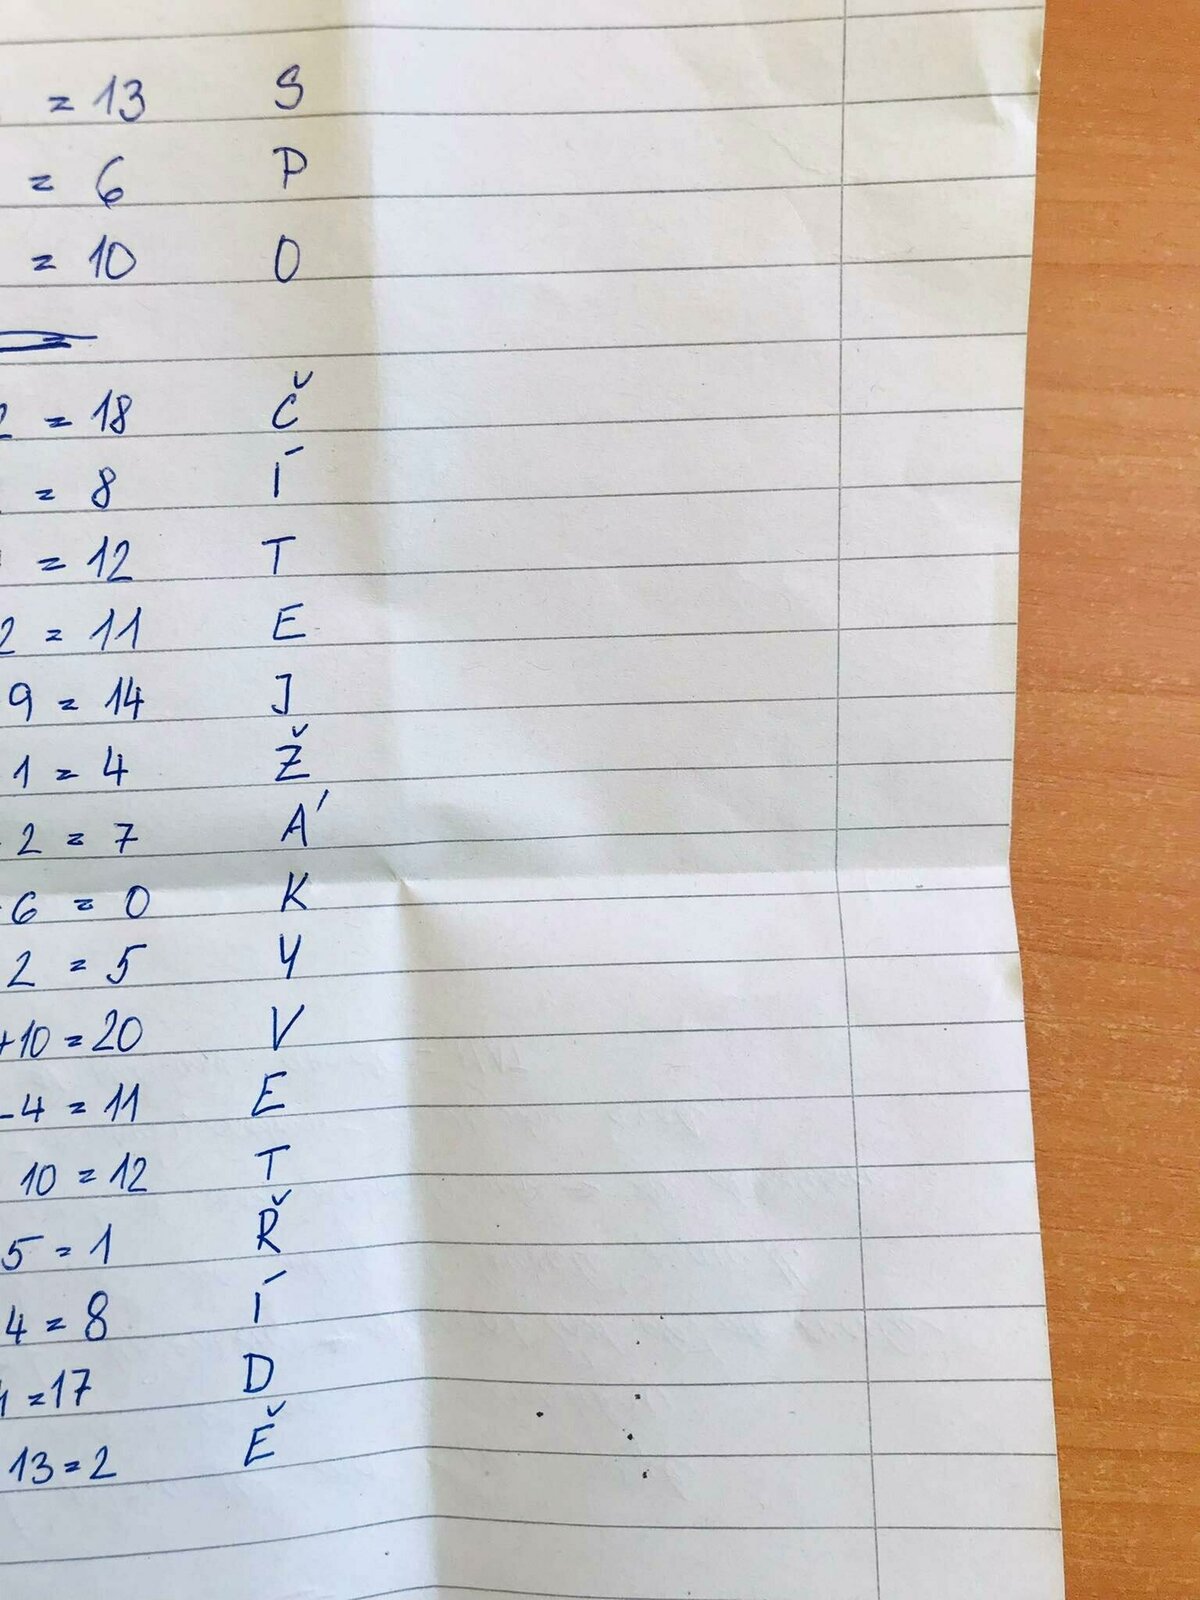 = 13 S
= 6 P
= 10 O
2 = 18 Č
= 8 Í
= 12 T
2 = 11 E
9 = 14 J
1 = 4 Ž
2 = 7 Á
6 = 0 K
2 = 5 Y
+10 = 20 V
-4 = 11 E
10 = 12 T
5 = 1 Ř
4 = 8 Í
=17 D
13=2 Ě